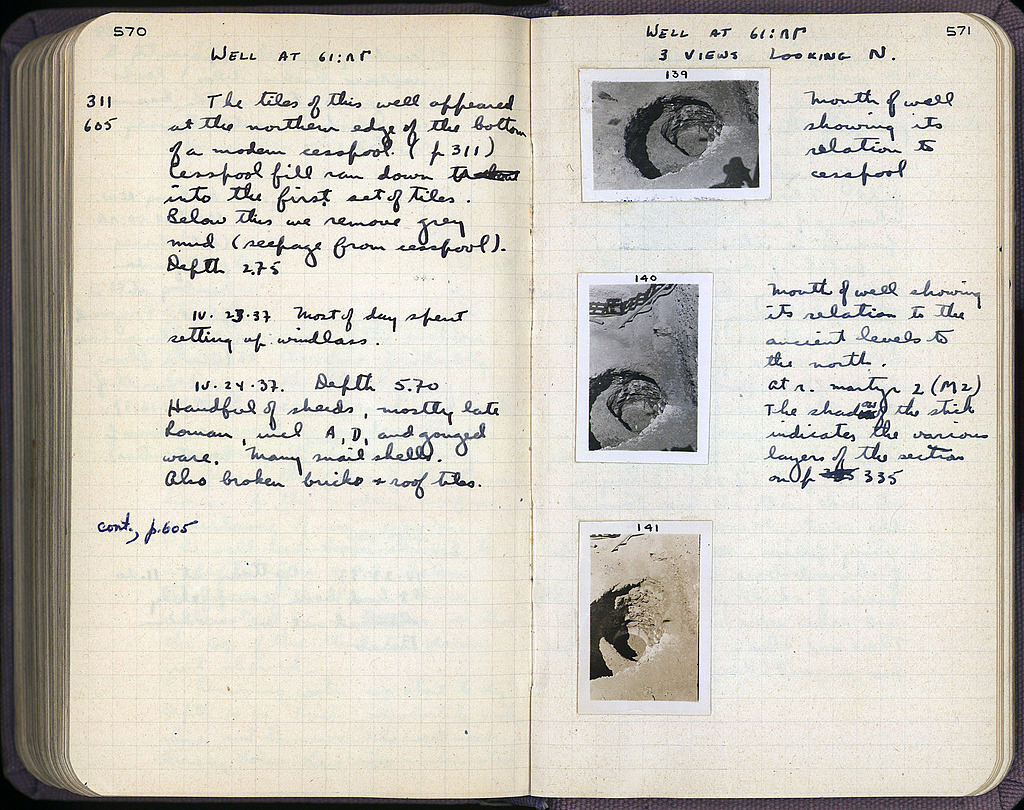 570
WELL AT 61:ΛΓ
311
605
The tiles of this well appeared
at the northern edge of the bottom
of a modern cesspool. (p 311)
Cesspool fill ran down
into the first set of tiles.
Below this we remove grey
mud (seepage from cesspool).
Depth 2.75
IV. 23.37 Most of day spent
setting up windlass.
IV. 24.37. Depth 5.70
Handful of sherds, mostly late
Roman, incl A, D, and gouged
ware. Many snail shells.
Also broken bricks + roof tiles.
cont., p.605
571
WELL AT 61:ΛΓ
3 VIEWS LOOKING N.
139
Mouth of well
showing its
relation to
cesspool
140
Mouth of well showing
its relation to the
ancient levels to
the north.
At r. martyr 2 (M2)
The shading on the stick
indicates the various
layers of the section
on p 335
141